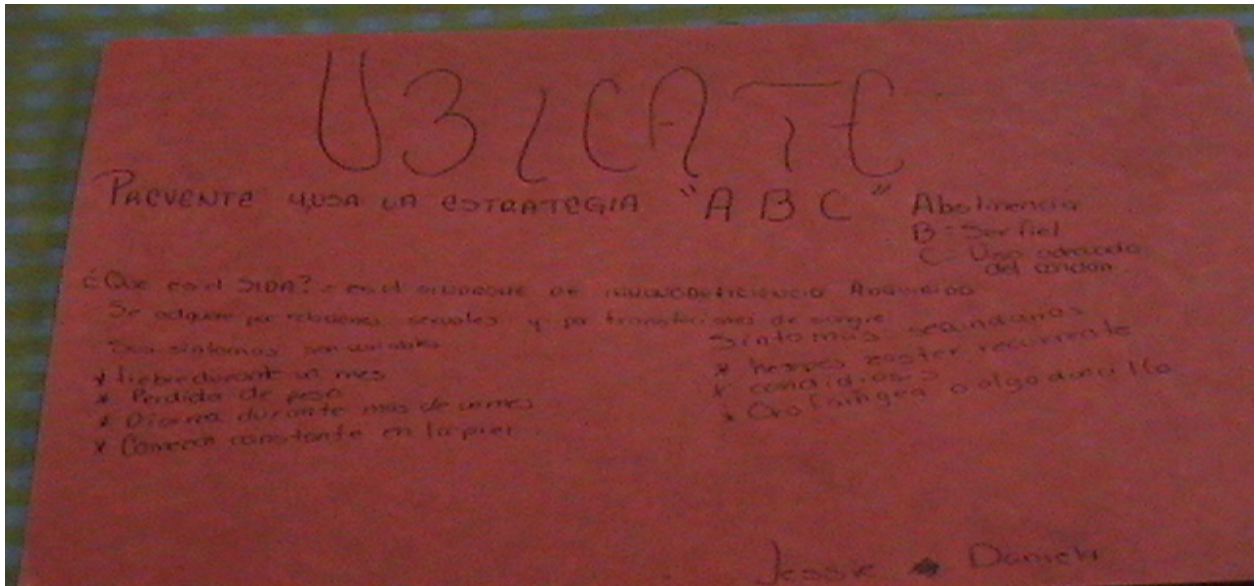 UBICATE
PREVENTE Y USA LA ESTRATEGIA "A B C" Abstinencia
B = Ser fiel
C = Uso adecuado
del condón
¿Que es el SIDA? = es el SINDROME DE INMUNODEFICIENCIA ADQUIRIDA
Se adquiere por relaciones sexuales y por transfuciones de sangre
Sus sintomas son variables
* fiebre durante un mes
* Perdida de peso
* Diarrea durante mas de un mes
* Comezon constante en la piel
Sintomas secundarios
* herpes zoster recurrente
* candidiasis
* Orofaringea o algodoncillo
Jessie Daniela